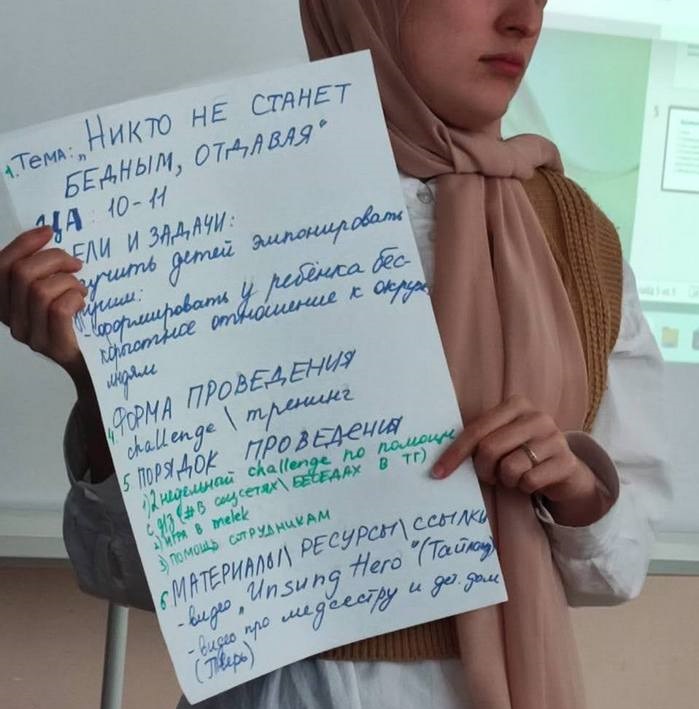 1. Тема: „Никто не станет
бедным, отдавая"
ЦА: 10-11
ели и задачи:
детей эмпонировать
- сформировать у ребёнка бес-
корыстное отношение к окруж
людям
4. Форма проведения
challenge \ тренинг
5. Порядок проведения
1) 2 недельный challenge по помощи
с д/з (#в соцсетях \ беседах в тг)
2) игра в melek
3) помощь сотрудникам
6. Материалы \ ресурсы \ ссылки
- видео „Unsung Hero" (Тайланд)
- видео про медсестру и дет. дом
(Тверь)